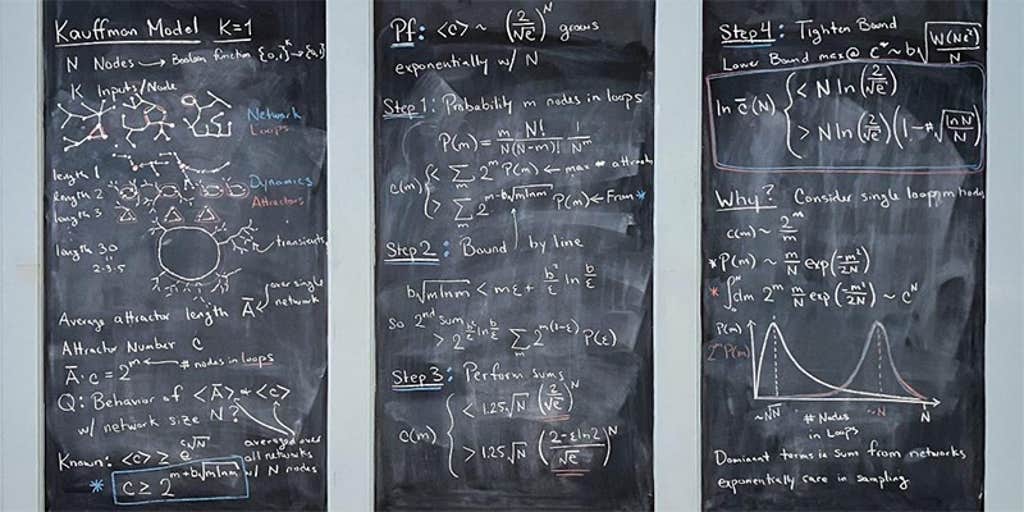 Kauffman Model K=1
N Nodes → Boolean function {0,1}^K → {0,1}
K Inputs/Node
Network
Loops
length 1
length 2
length 3
Dynamics
Attractors
length 30
"
2·3·5
transients
Average attractor length Ā ← over single network
Attractor Number c
Ā·c = 2^m ← # nodes in loops
Q: Behavior of <Ā> + <c>
w/ network size N?
averaged over all networks w/ N nodes
Known: <c> ≥ e^{c√N}
* c ≥ 2^{m+b√(m ln m)}
Pf: <c> ~ (2/√e)^N grows
exponentially w/ N
Step 1: Probability m nodes in loops
P(m) = m/N N!/(N-m)! 1/N^m
c(m) { < Σ_m 2^m P(m) ← max # attracts
> Σ_m 2^{m-b√(m ln m)} P(m) ← From *
Step 2: Bound by line
b√(m ln m) < mε + b²/ε ln b/ε
So 2nd sum
> 2^{b²/ε ln b/ε} Σ_m 2^{m(1-ε)} P(ε)
Step 3: Perform sums
c(m) { < 1.25√N (2/√e)^N
> 1.25√N ((2-ε ln 2)/√e)^N
Step 4: Tighten Bound
Lower Bound max @ ε* ~ b√(W(Ne²)/N)
ln c̄(N) { < N ln(2/√e)
> N ln(2/√e)(1-#√(ln N/N))
Why? Consider single loop, m nodes
c(m) ~ 2^m/m
* P(m) ~ m/N exp(-m²/2N)
* ∫_0^N dm 2^m m/N exp(-m²/2N) ~ c^N
P(m)
2^m P(m)
~√N
# Nodes
in Loops
~N
N
Dominant terms in sum from networks
exponentially rare in sampling